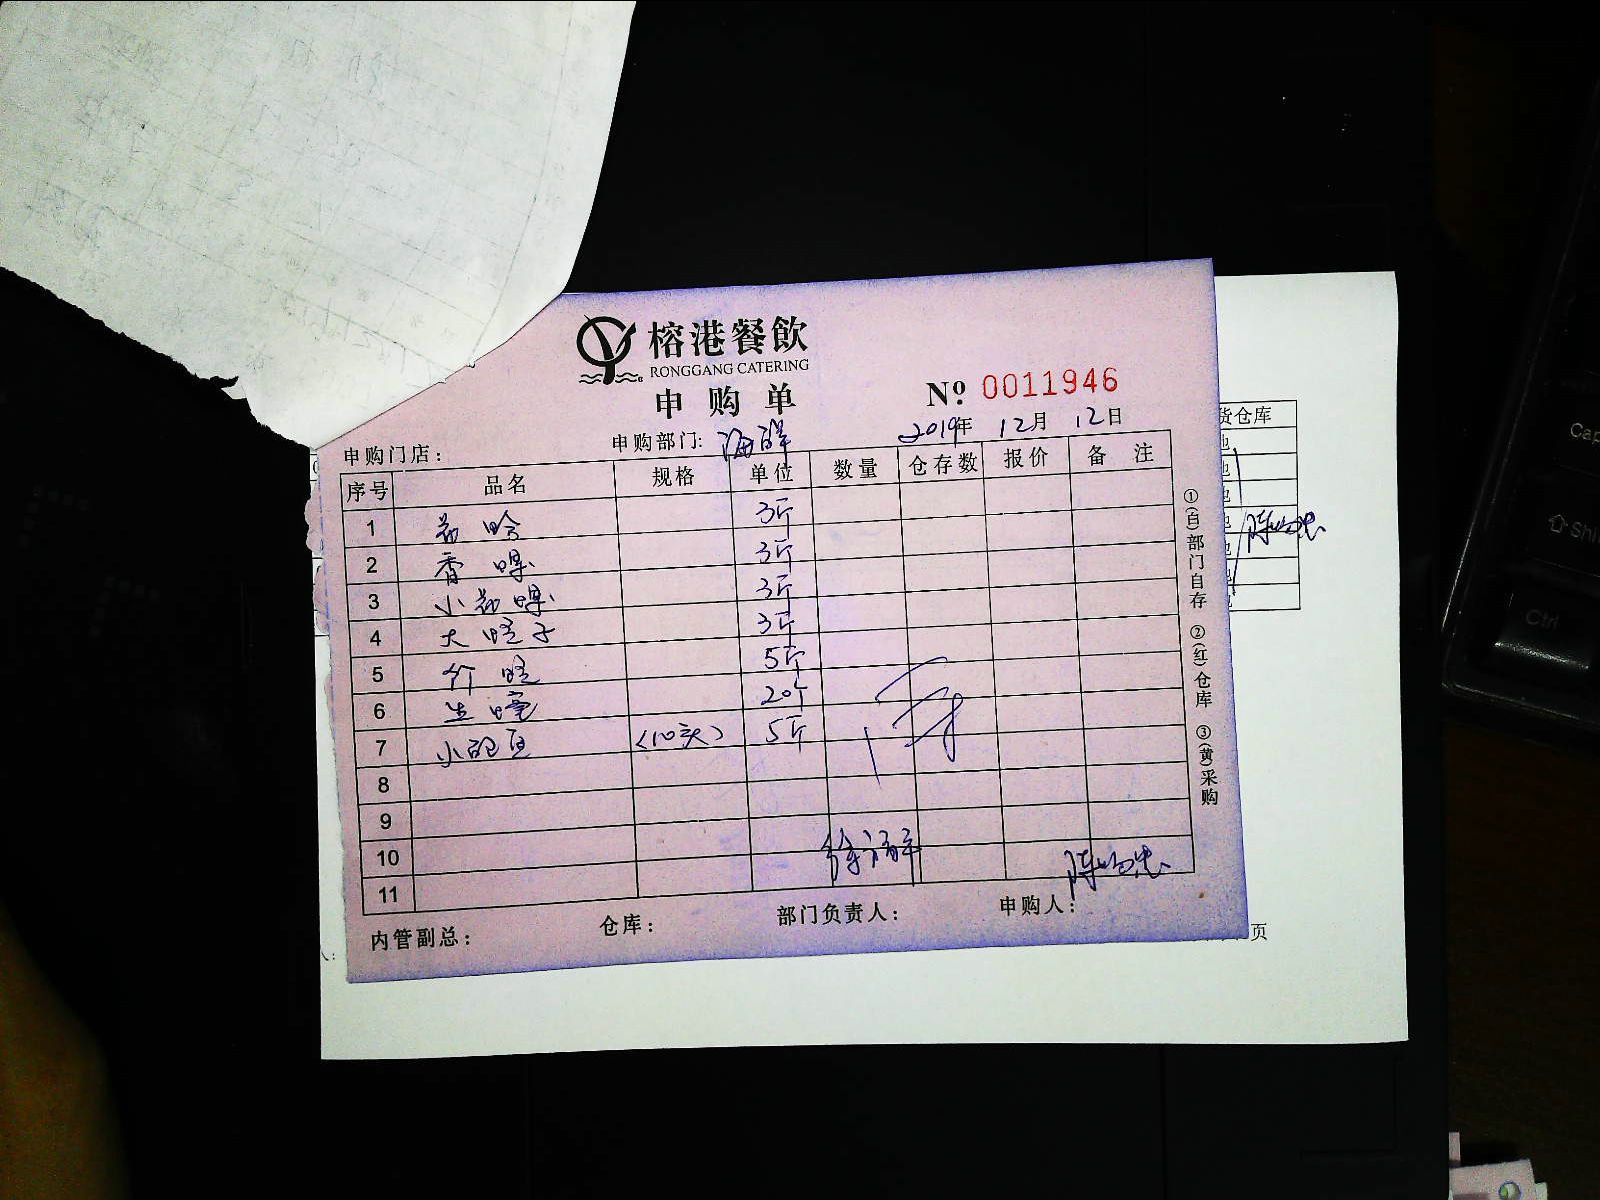 榕港餐飲
RONGGANG CATERING
申购单
№ 0011946
申购门店:
申购部门: 海鲜
2019年 12月 12日
序号 品名 规格 单位 数量 仓存数 报价 备注
1 3斤
2 香螺 3斤
3 小花螺 3斤
4 大蛏子 3斤
5 竹蛏 5斤
6 生蚝 20个
7 小鲍鱼 (10头) 5斤
8
9
10
11
内管副总:
仓库:
部门负责人:
申购人:
①(白)部门自存 ②(红)仓库 ③(黄)采购
货仓库
页
Cap
Shi
Ctrl